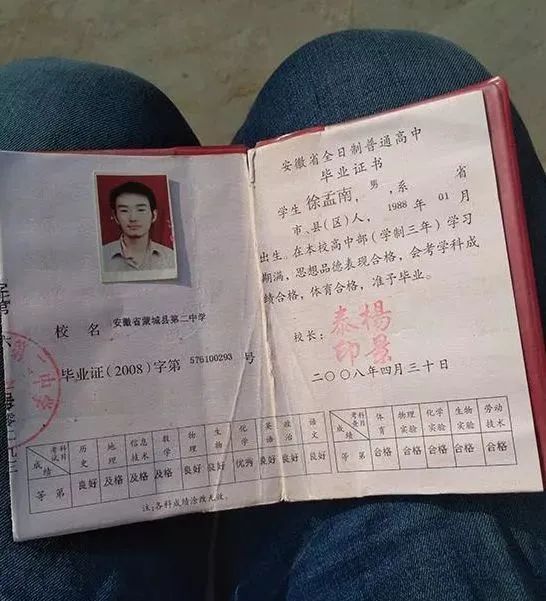 校 名 安徽省蒙城县第二中学
毕业证(2008)字第 576100293 号
安徽省全日制普通高中
毕业证书
学生 徐孟南, 男, 系 省
市、县(区)人, 1988 年 01 月
出生。在本校高中部(学制三年)学习
期满, 思想品德表现合格, 会考学科成
绩合格, 体育合格, 准予毕业。
校长: 杨景泰印
二〇〇八年四月三十日
考试科目 历史 地理 信息技术 数学 物理 生物 化学 英语 政治 语文
成绩
等第 良好 及格 及格 及格 良好 良好 优秀 良好 良好 良好
考查科目 体育 物理实验 化学实验 生物实验 劳动技术
成绩 合格 合格 合格 合格 合格
注:各科成绩涂改无效。